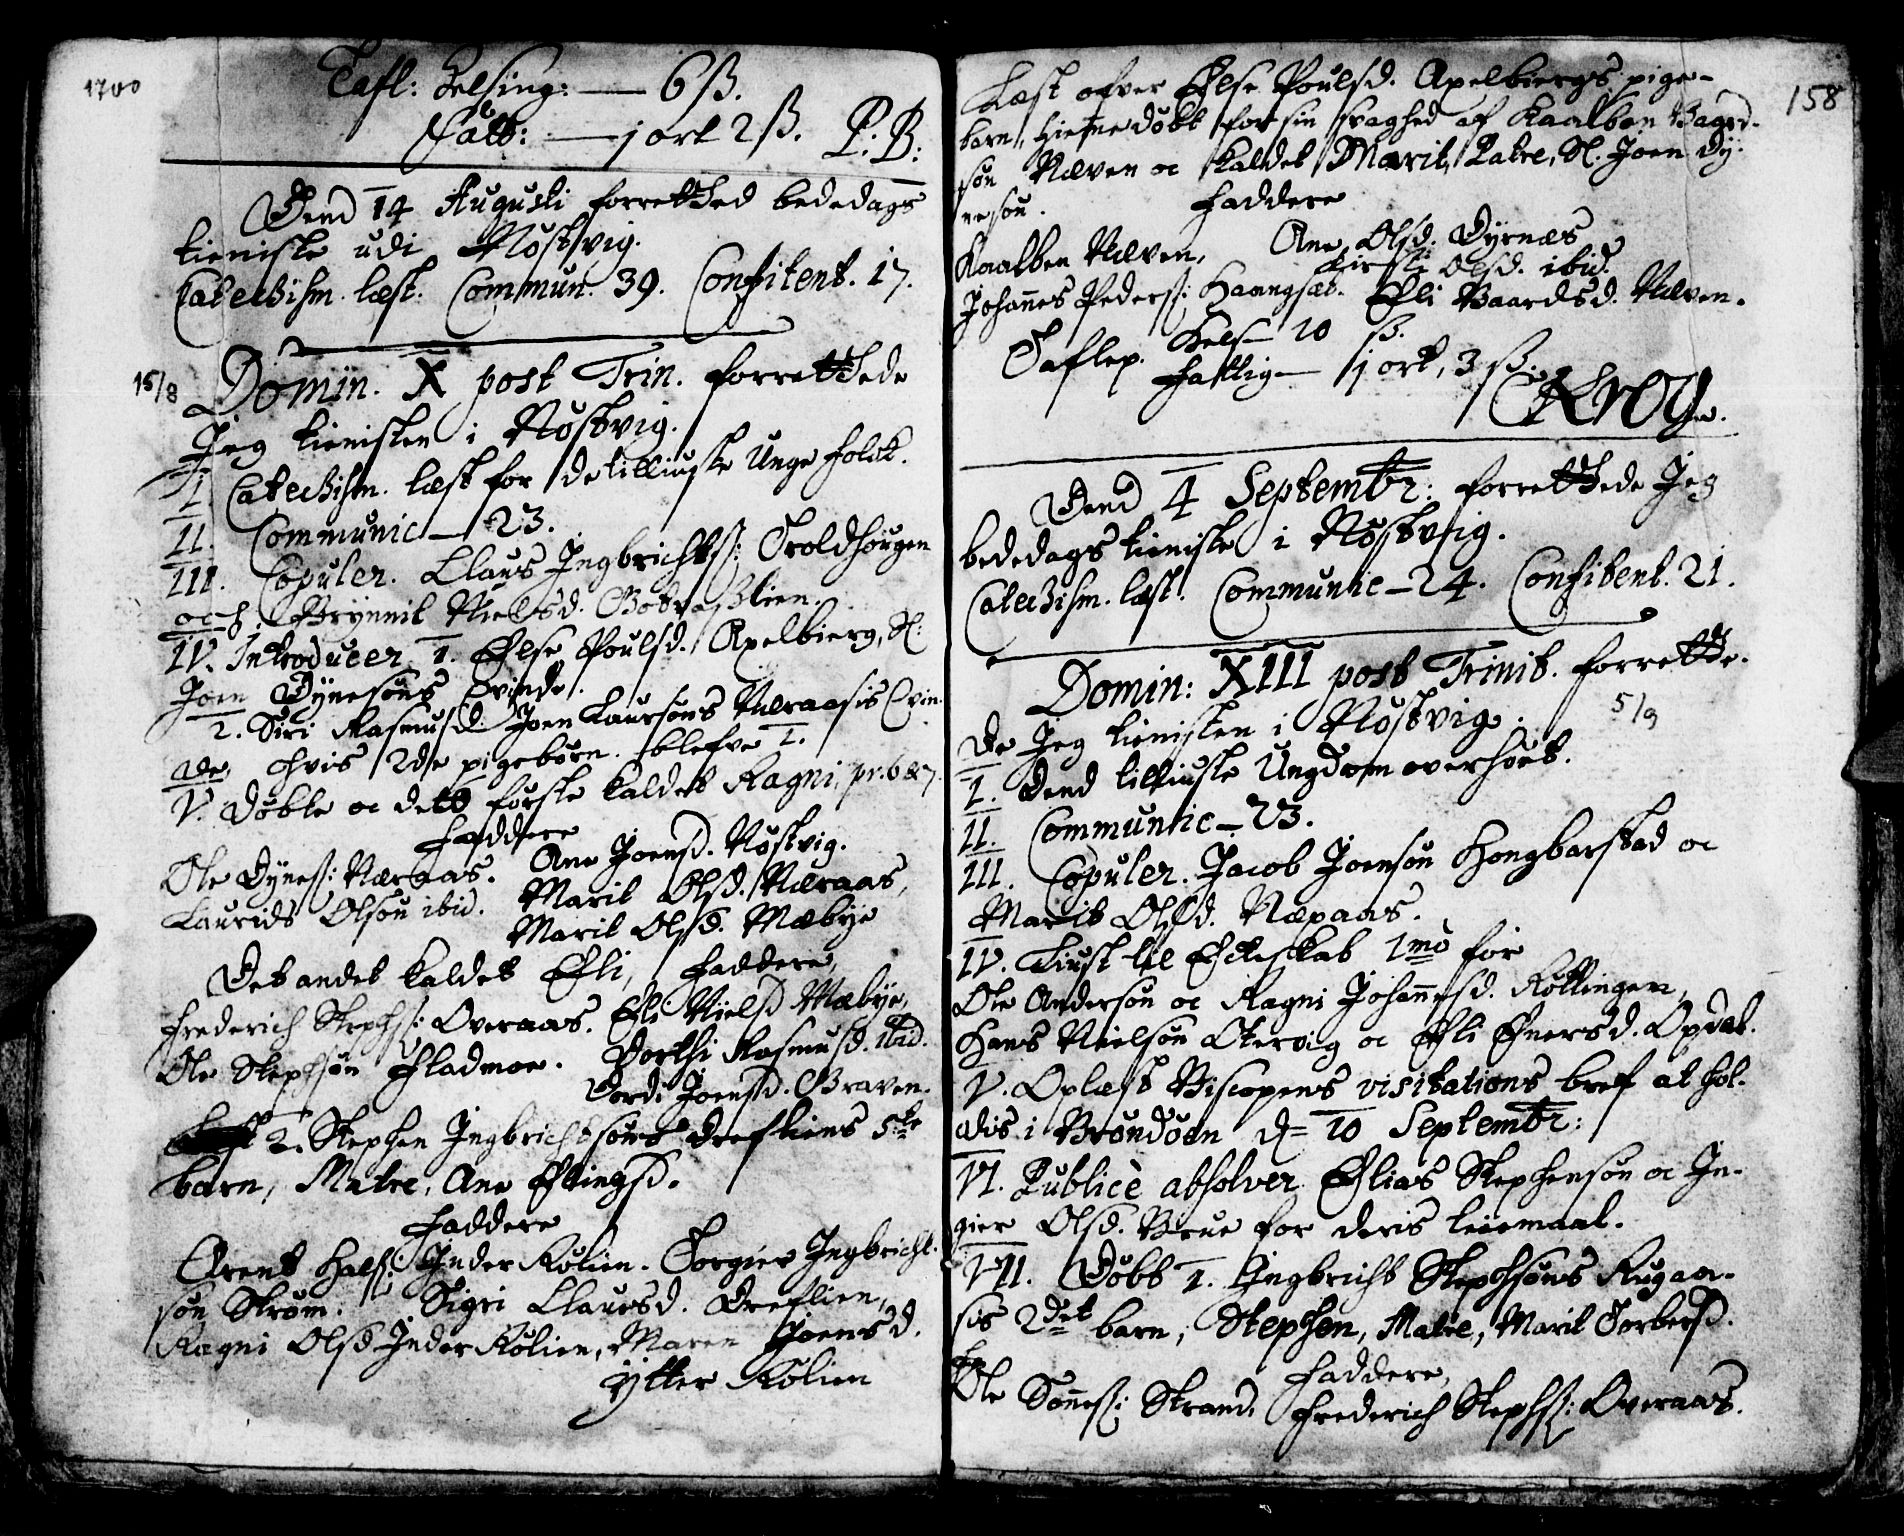 1700
Tafl: Helsing: — 6 ß.
Fatt: — j ort 2 ß. P. B:
Dend 14 Augusti forretthed bededags
tieniste udi Røstvig.
Catechism. læst: Commun. 39. Confitent. 17.
15/8 Domin. X post Trin. forretthede
Jeg tienisten i Røstvig.
I. Catechism. læst for de tilliuste Unge folck.
II. Communic — 23.
III. Copuler. Claus Ingbrichtß: Troldhougen
och Brynnil Nielsd.
IV. Introducer 1. Else Poulsd. Apelbierg, Sl:
Joen Dynesøns Qvinde.
2. Siri Rasmusd. Joen Laursøns Næraasis Qvin-
de, hvis 2de pigebørn blefve
V. Døbte oc dett første kaldet Ragni, pr. 6 & 7.
Faddere
Ole Dyneß: Næraas. Ane Joensd. Røstvig.
Laurids Olsøn ibid. Marit Olsd. Næraas,
Marit Olsd. Mæbye
Det andet kaldet Eli, Faddere,
Frederich Stephß: Overaas. Eli Nielsd Mæbye,
Ole Stephsøn Fladmoe. Dorthi Rasmusd. ibid.
Dordi Joensd. Graven.
2. Stephen Ingbrichtsøns Drefliens 5te
barn, Matre, Ane Ellingsd.
Faddere
Arent Halß: Inder Kølien. Torgier Ingbricht-
søn Strøm. Sigri Clausd. Dreflien,
Ragni Olsd Inder Kølien, Maren Joensd.
Ytter Kølien
158
Læst ofver Else Poulsd. Apelbiergs pige-
barn, hieme døbt for sin svaghed af Kaalben Baard-
søn Næven oc kaldet Marit, Patre, Sl. Joen Dy-
nesøn. Faddere
Kaalben Næven, Ane Olsd. Dyrnæs
Kirsti Olsd. ibid.
Johannes Pederß: Haangsæt. Eli Baardsd. Næven.
Taflep. Hels — 10 ß.
Fattig — j ort, 3 ß.
Krog.
Dend 4 Septembr: forretthede Jeg
bededags tieniste i Røstvig.
Catechism. læst. Communic — 24. Confitent. 21.
Domin: XIII post Trinit. forretthe-
5/9
de Jeg tienisten i Røstvig.
I. Dend tilliuste Ungdom overhørt.
II. Communic — 23.
III. Copuler. Jacob Joensøn Hongbarstad oc
Marit Olsd. Næpaas.
IV. Liust til Echteskab 1mo for
Ole Andersøn oc Ragni Johannesd. Røttingen,
Hans Nielsøn Otervig oc Eli Enersd. Opdal.
V. Oplæst Biscopens visitations bref at hol-
dis i Brøndøen d= 10 Septembr:
VI. Publicè absolver. Elias Stephensøn oc In-
gier Olsd. Brue for deris leiermaal.
VII. Døbt 1. Ingbricht Stephsøns Rugaa-
sis 2det barn, Stephen, Matre, Marit Torbersd.
Faddere,
Ole Tønneß: Strand. Frederich Stephß: Overaas.